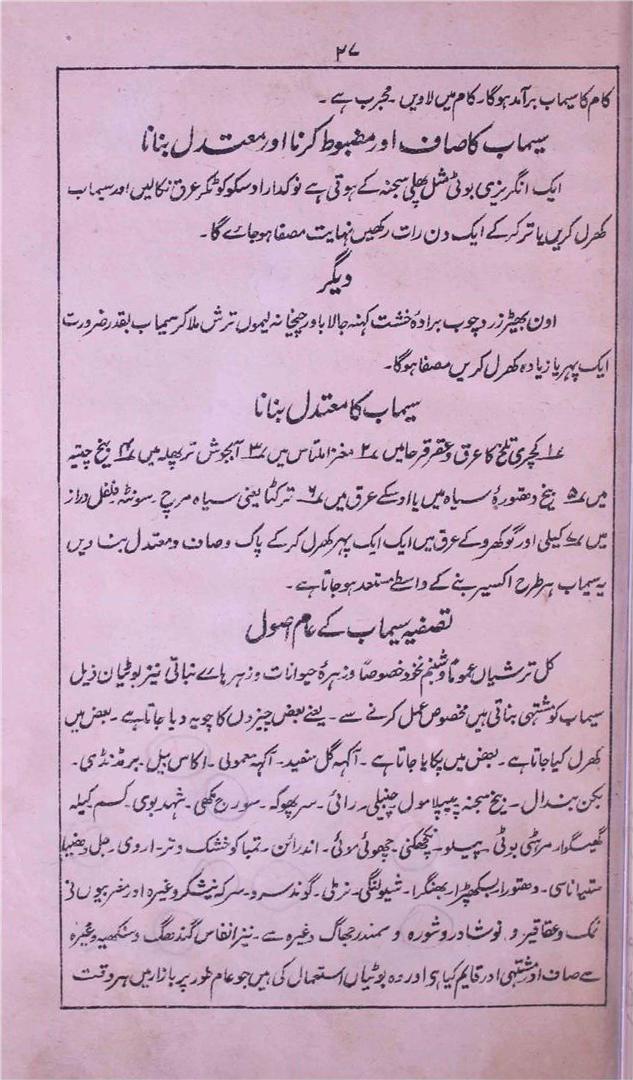 ۲۷
کام کا سیماب برآمد ہوگا۔ کام میں لاویں۔ مجرب ہے۔
سیماب کا صاف اور مضبوط کرنا اور معتدل بنانا
ایک انگریزی بوٹی مثل پھلی سہجنہ کے ہوتی ہے نوکدار اوسکو کوٹکر عرق نکالیں اور سیماب
کھرل کریں یا تر کر کے ایک دن رات رکھیں نہایت مصفا ہو جاے گا۔
دیگر
اون بھیڑ زرد چوب برادہ خشت کہنہ جالا باورچیخانہ لیموں ترش ملا کر سیماب بقدر ضرورت
ایک پہر یا زیادہ کھرل کریں مصفا ہوگا۔
سیماب کا معتدل بنانا
۱ کچری تلخ کا عرق و عقر قرحا میں ۲ مغز املتاس میں ۳ آبجوش تر پھلہ میں ۴ بیخ چیتہ
میں ۵ بیخ دھتورہ سیاہ میں یا اوسکے عرق میں ۶ ترکٹا یعنی سیاہ مرچ۔ سونٹھ۔ فلفل دراز
میں ۷ کیلی اور گوکھرو کے عرق میں ایک ایک پہر کھرل کر کے پاک و صاف و معتدل بنا دیں
یہ سیماب ہر طرح اکسیر بننے کے واسطے مستعد ہو جاتا ہے۔
تصفیہ سیماب کے عام اصول
کل ترشیاں عموماً و شبنم نخود خصوصاً و زہرہ حیوانات و زہر ہاے نباتی نیز بوٹیان ذیل
سیماب کو مشتہی بناتی ہیں مخصوص عمل کرنے سے۔ یعنے بعض چیزوں کا چویہ دیا جاتا ہے۔ بعض میں
کھرل کیا جاتا ہے۔ بعض میں پکایا جاتا ہے۔ آکہہ گل سفید۔ آکہہ معمولی۔ اکاس بیل۔ برمڈنڈی۔
بندال۔ بیخ سہجنہ پیپلا مول چنبلی۔ رائی۔ سرپھوکہ۔ سورج مکھی۔ شہد بوی۔
مرہٹی بوٹی۔ پیلو۔ نکچھکنی۔ چھوئی موئی۔ اندرائن۔ تمباکو خشک و تر۔ اروی۔
ستیاناسی۔ دھتورا بسکھپڑا۔ بھنگرا۔ شیولنگی۔ نرملی۔ گوند سرو۔ سرکہ نیشکر وغیرہ اور
نمک و عقاقیر و نوشادر و شورہ و سمندر جھاگ وغیرہ سے۔ نیز انفاس گندھک و سنکھیہ وغیرہ
سے صاف اور مشتہی اور قایم کیا اور وہ بوٹیاں استعمال کی ہیں جو عام طور پر بازار میں ہر وقت